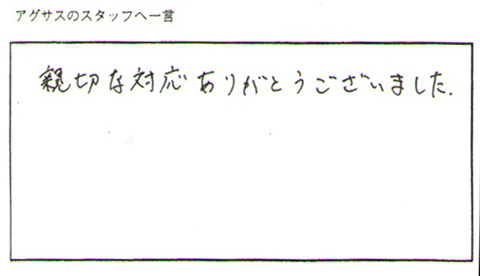 アグサスのスタッフへ一言
親切な対応ありがとうございました.